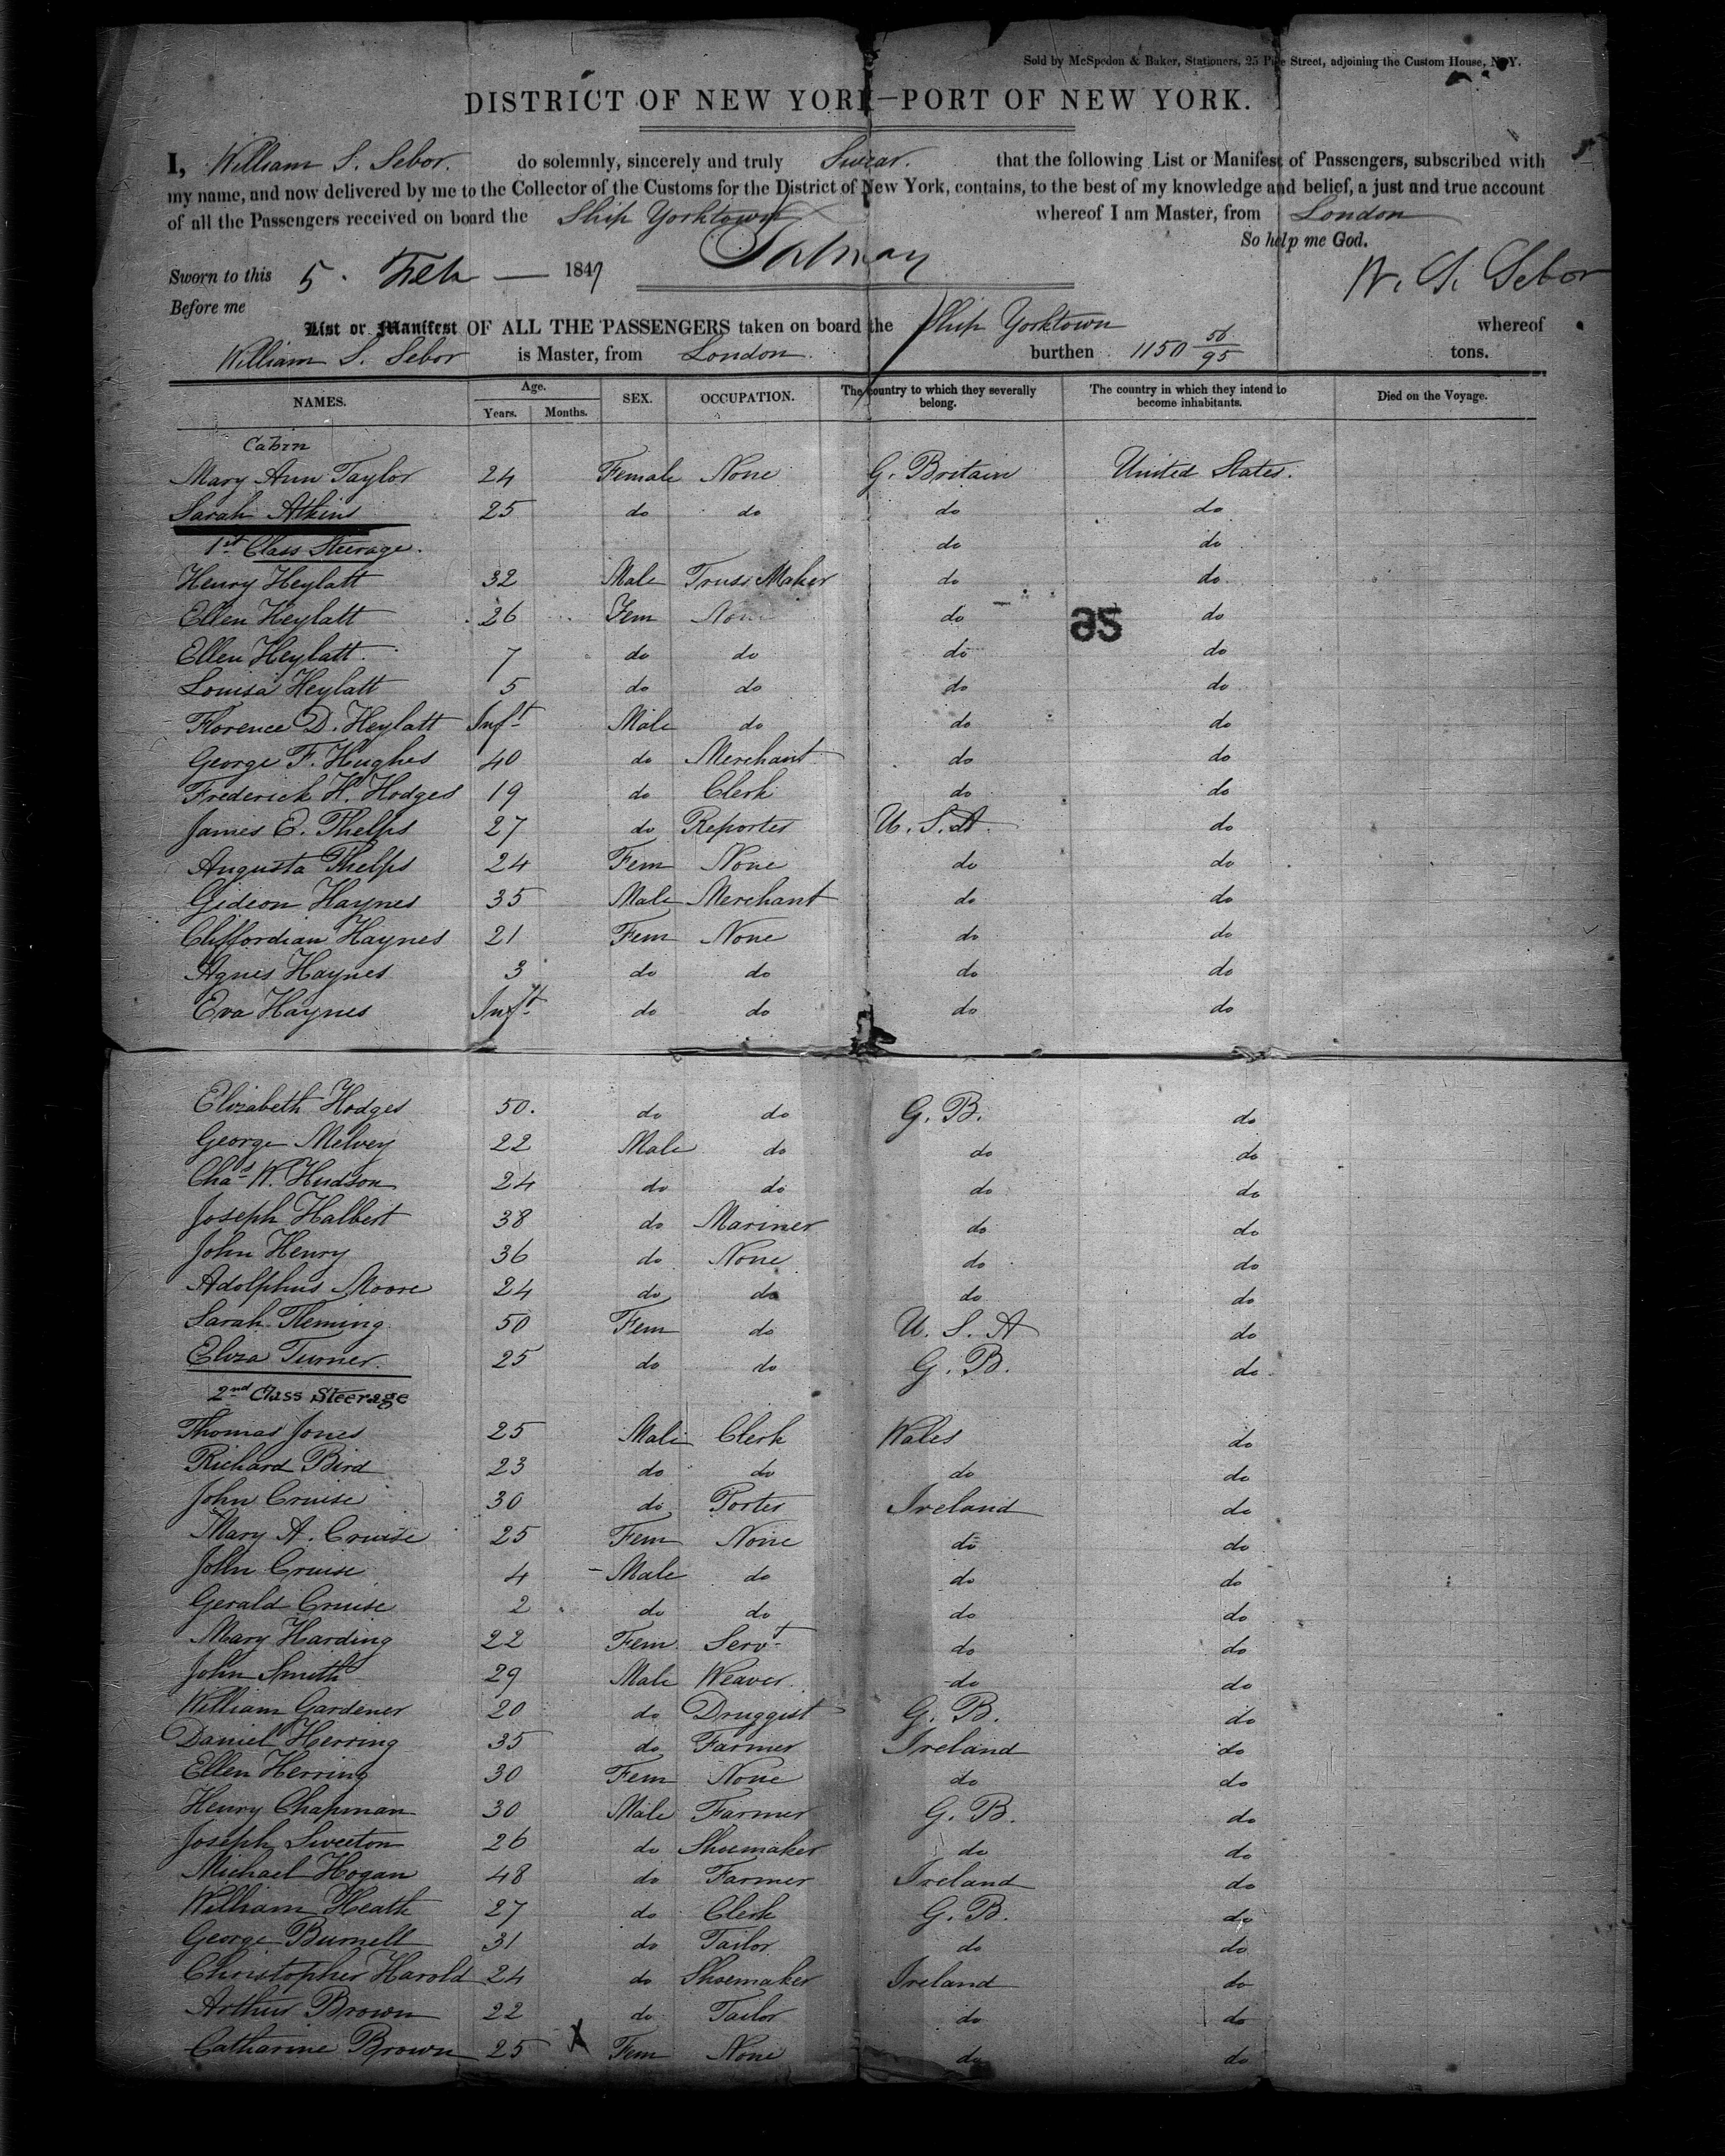 Sold by McSpedon & Baker, Stationers, 25 Pine Street, adjoining the Custom House, N.Y.
DISTRICT OF NEW YORK—PORT OF NEW YORK.
I, William S. Sebor. do solemnly, sincerely and truly Swear. that the following List or Manifest of Passengers, subscribed with
my name, and now delivered by me to the Collector of the Customs for the District of New York, contains, to the best of my knowledge and belief, a just and true account
of all the Passengers received on board the Ship Yorktown whereof I am Master, from London
So help me God.
Sworn to this 5. Feb — 1847 W. S. Sebor
Before me
List or Manifest OF ALL THE PASSENGERS taken on board the Ship Yorktown whereof
William S. Sebor is Master, from London. burthen 1150 56/95 tons.
NAMES. Age. Years. Months. SEX. OCCUPATION. The country to which they severally belong. The country in which they intend to become inhabitants. Died on the Voyage.
Cabin
Mary Ann Taylor 24 Female None G. Britain United States.
Sarah Atkins 25 do do do do
1st Class Steerage. do do
Henry Heylatt 32 Male Truss Maker do do
Ellen Heylatt 26 Fem None do do
Ellen Heylatt 7 do do do do
Louisa Heylatt 5 do do do do
Florence D. Heylatt Inft Male do do do
George F. Hughes 40 do Merchant do do
Frederick H. Hodges 19 do Clerk do do
James E. Phelps 27 do Reporter U.S.A. do
Augusta Phelps 24 Fem None do do
Gideon Haynes 35 Male Merchant do do
Cliffordian Haynes 21 Fem None do do
Agnes Haynes 3 do do do do
Eva Haynes Inft do do do do
Elizabeth Hodges 50. do do G. B. do
George Melvey 22 Male do do do
Chas W. Hudson 24 do do do do
Joseph Halbert 38 do Mariner do do
John Henry 36 do None do do
Adolphus Moore 24 do do do do
Sarah Fleming 50 Fem do U. S. A do
Eliza Turner. 25 do do G. B. do
2nd Class Steerage
Thomas Jones 25 Male Clerk Wales do
Richard Bird 23 do do do do
John Cruise 30 do Porter Ireland do
Mary A. Cruise 25 Fem None do do
John Cruise 4 Male do do do
Gerald Cruise 2 do do do do
Mary Harding 22 Fem Servt do do
John Smith 29 Male Weaver do do
William Gardener 20 do Druggist G. B. do
Daniel Herring 35 do Farmer Ireland do
Ellen Herring 30 Fem None do do
Henry Chapman 30 Male Farmer G. B. do
Joseph Sweeton 26 do Shumaker do do
Michael Hogan 48 do Farmer Ireland do
William Heath 27 do Clerk G. B. do
George Burnell 31 do Tailor do do
Christopher Harold 24 do Shoemaker Ireland do
Arthur Brown 22 do Tailor do do
Catharine Brown 25 X Fem None do do